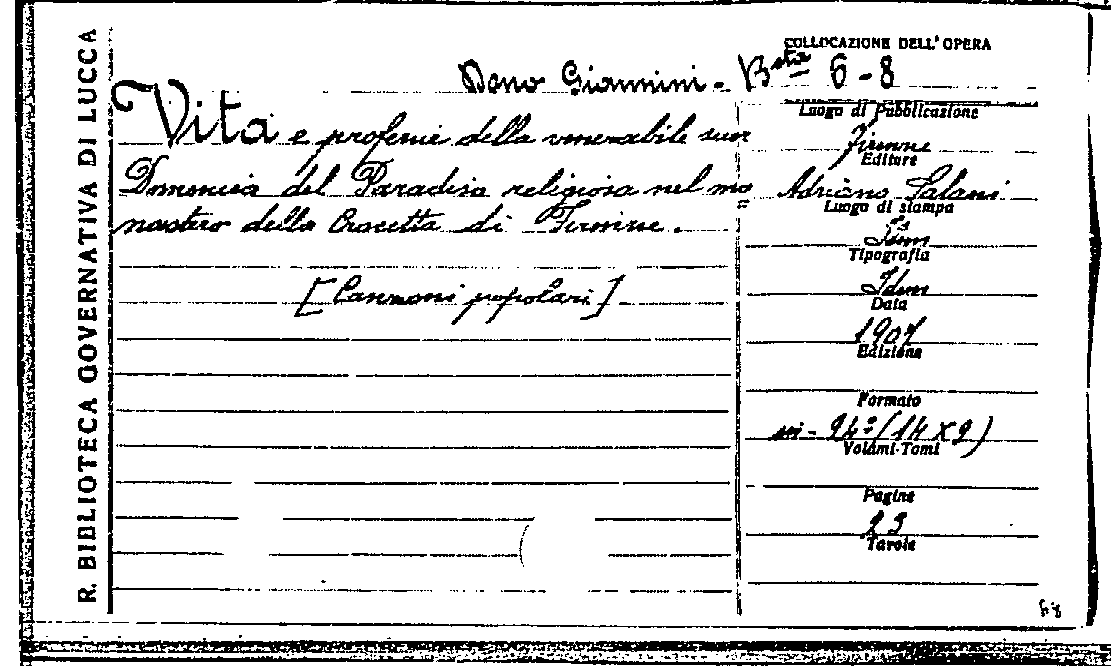 R. BIBLIOTECA GOVERNATIVA DI LUCCA
COLLOCAZIONE DELL'OPERA
Dono Giannini - Bsta 6-8
Vita e profezie della venerabile suor
Domenica del Paradiso religiosa nel mo=
nastero della Crocetta di Firenze.
[Canzoni popolari]
Luogo di Pubblicazione
Firenze
Editore
Adriano Salani
Luogo di stampa
Idem
Tipografia
Idem
Data
1907
Edizione
Formato
in-24º (14 x 9)
Volumi-Tomi
Pagine
23
Tavole
68